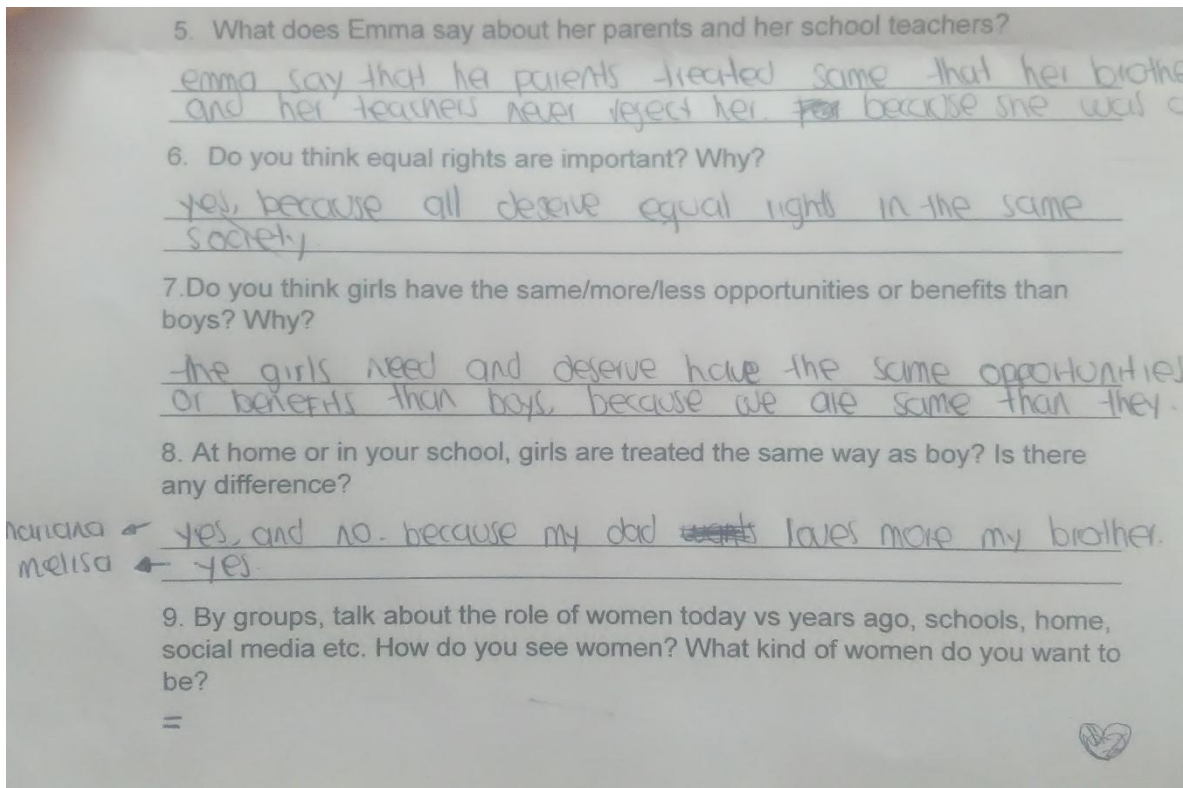 5. What does Emma say about her parents and her school teachers?
emma say that her parents treated same that her brothe
and her teachers never reject her. because she was
6. Do you think equal rights are important? Why?
yes, because all deserve equal rights in the same
society
7.Do you think girls have the same/more/less opportunities or benefits than
boys? Why?
the girls need and deserve have the same opportunities
or benefits than boys, because we are same than they.
8. At home or in your school, girls are treated the same way as boy? Is there
any difference?
mariana ← yes, and no. because my dad loves more my brother.
melisa ← yes.
9. By groups, talk about the role of women today vs years ago, schools, home,
social media etc. How do you see women? What kind of women do you want to
be?
=